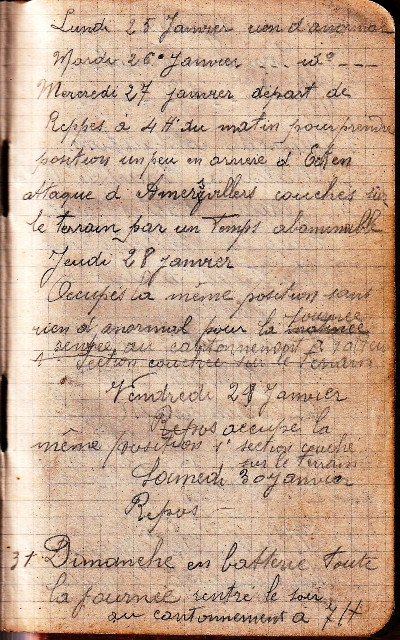 Lundi 25 Janvier rien d'anormal
Mardi 26 Janvier _ _ id° _ _ _
Mercredi 27 janvier départ de
Reppes à 4 H du matin pour prendre
position un peu en arriere d'
attaque d'Amerzvillers couchés sur
le terrain par un Temps abominable
Jeudi 28 Janvier
Occupés la même position sans
rien d'anormal pour la journée
au cantonnement à
1° Section couchée sur le terrain
Vendredi 29 Janvier
Repos occupé la
même position 1° section couche
sur le terrain
Samedi 30 Janvier
Repos
31 Dimanche en batterie toute
la journée rentré le soir
au cantonnement a 7 H